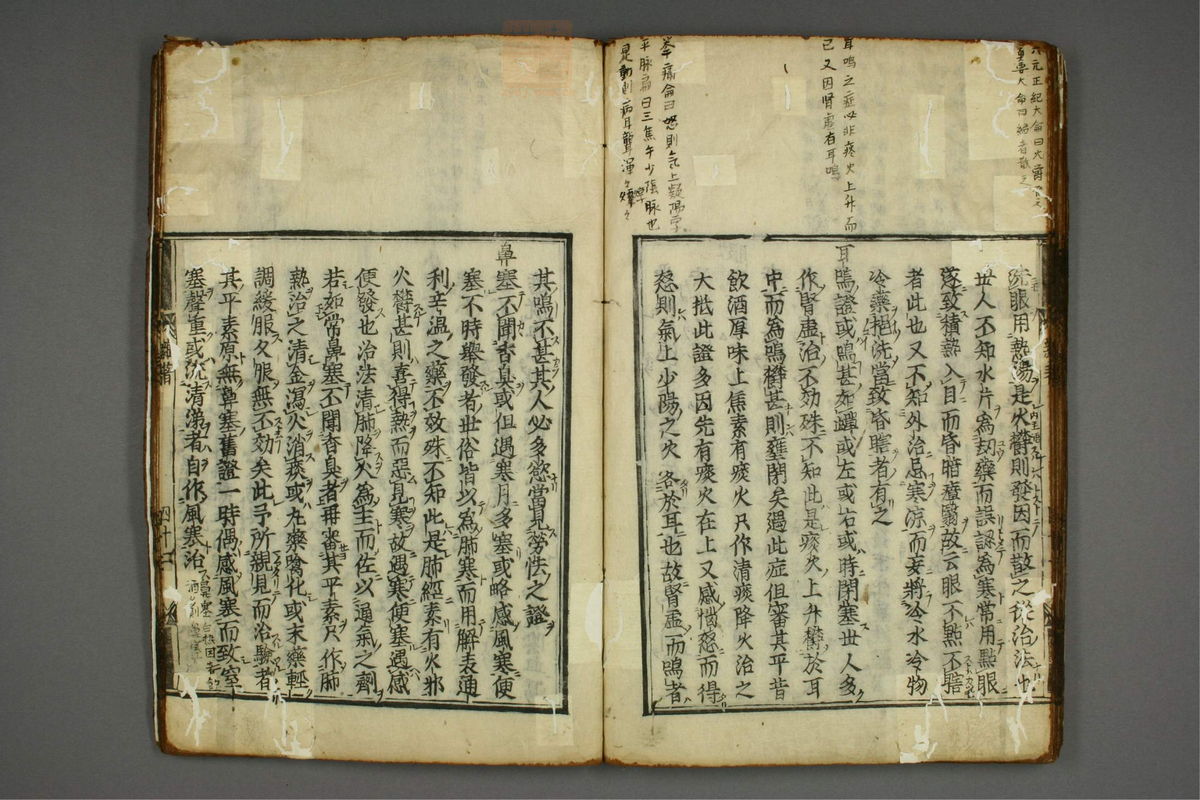 六元正紀大侖曰火鬱發之
耳鳴之症必非痰火上升而
已又因腎虛有耳鳴
洗眼用熱湯是火鬱則發因而散之從治法也
世人不知水片為刼藥而誤認為寒常用點眼
遂致積熱入目而昏暗瘴翳故云眼不點不瞎
者此也又不知外治忌寒涼而妄將冷水冷物
冷藥挹洗當致昏瞎者有之
耳鳴證或鳴甚如蟬或左或右或時閉塞世人多
作腎虛治不効殊不知此是痰火上升鬱於耳
中而為鳴鬱甚則壅閉矣遇此症但審其平昔
飲酒厚味上焦素有痰火只作清痰降火治之
大抵此證多因先有痰火在上又感惱怒而得
怒則氣上少陽之火客於耳也故腎虛而鳴者
平脉扁曰三焦手少陰脉也
是動則病耳聾渾々焞々
其鳴不甚其人必多慾當見勞怯之證
鼻塞不聞香臭或但遇寒月多塞或略感風寒便
塞不時舉發者世俗皆以為肺寒而用解表通
利辛溫之藥不效殊不知此是肺經素有火邪
火鬱甚則喜得熱而惡見寒故遇寒便塞遇感
便發也治法清肺降火為主而佐以通氣之劑
若如常鼻塞不聞香臭者再審其平素只作肺
熱治之清金瀉火消痰或丸藥噙化或末藥輕
調緩服久服無不効矣此予所親見而治驗者
其平素原無鼻塞舊證一時偶感風寒而致窒
塞聲重或流清涕者自作風寒治
四十二